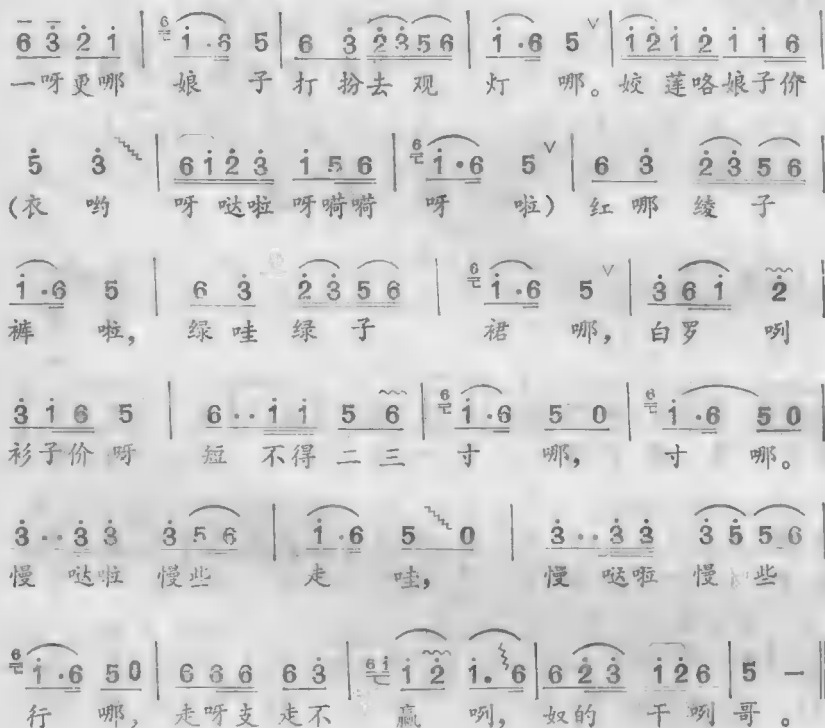 6 3 2 1 | 6 1·6 5 | 6 3 2 3 5 6 | 1·6 5 ∨ | 1 2 1 2 1 1 6
一呀更哪 娘 子 打 扮去 观 灯 哪。姣 莲咯娘子价
5 3 | 6 1 2 3 1 5 6 | 6 1·6 5 ∨ | 6 3 2 3 5 6 |
(衣 哟 呀 哒啦 呀嗬嗬 呀 啦) 红 哪 绫 子
1·6 5 | 6 3 2 3 5 6 | 6 1·6 5 ∨ | 3 6 1 2
裤 啦, 绿 哇 绿 子 裙 哪, 白罗 咧
3 1 6 5 | 6··1 1 5 6 | 6 1·6 5 0 | 6 1·6 5 0 |
衫子价 呀 短 不得 二 三 寸 哪, 寸 哪。
3··3 3 3 5 6 | 1·6 5 0 | 3··3 3 3 5 5 6 |
慢 哒啦 慢些 走 哇, 慢 哒啦 慢 些
6 1·6 5 0 | 6 6 6 6 3 | 6 1 1 2 1. 6 | 6 2 3 1 2 6 | 5 — ‖
行 哪, 走呀支 走不 赢 咧, 奴的 干 咧 哥。